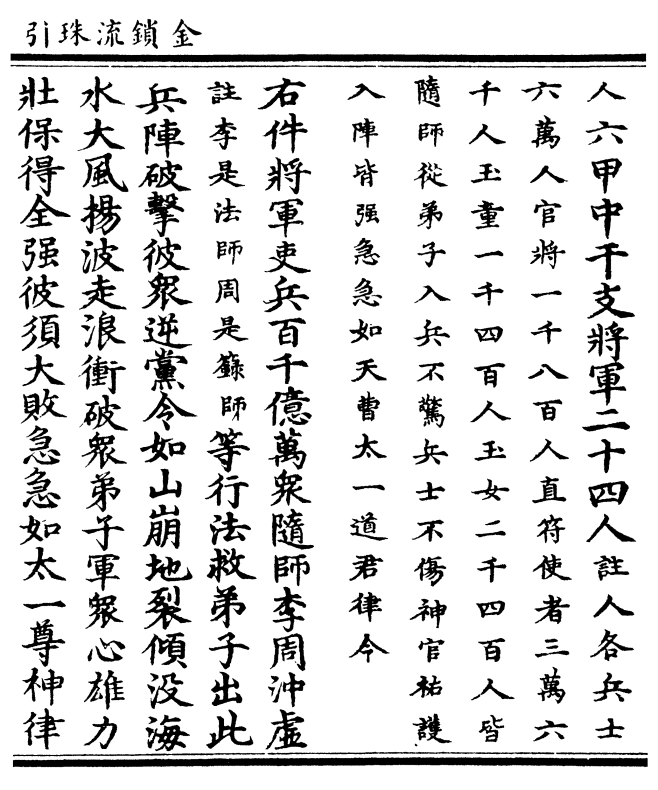 金鎖流珠引
人六甲中干支將軍二十四人註人各兵士
六萬人官將一千八百人直符使者三萬六
千人玉童一千四百人玉女二千四百人皆
隨師從弟子入兵不驚兵士不傷神官祐護
入陣皆强急急如天曹太一道君律令
右件將軍吏兵百千億萬衆隨師李周沖虛
註李是法師周是籙師等行法救弟子出此
兵陣破擊彼衆逆黨令如山崩地裂傾没海
水大風揚波走浪衝破衆弟子軍衆心雄力
壯保得全强彼須大敗急急如太一尊神律